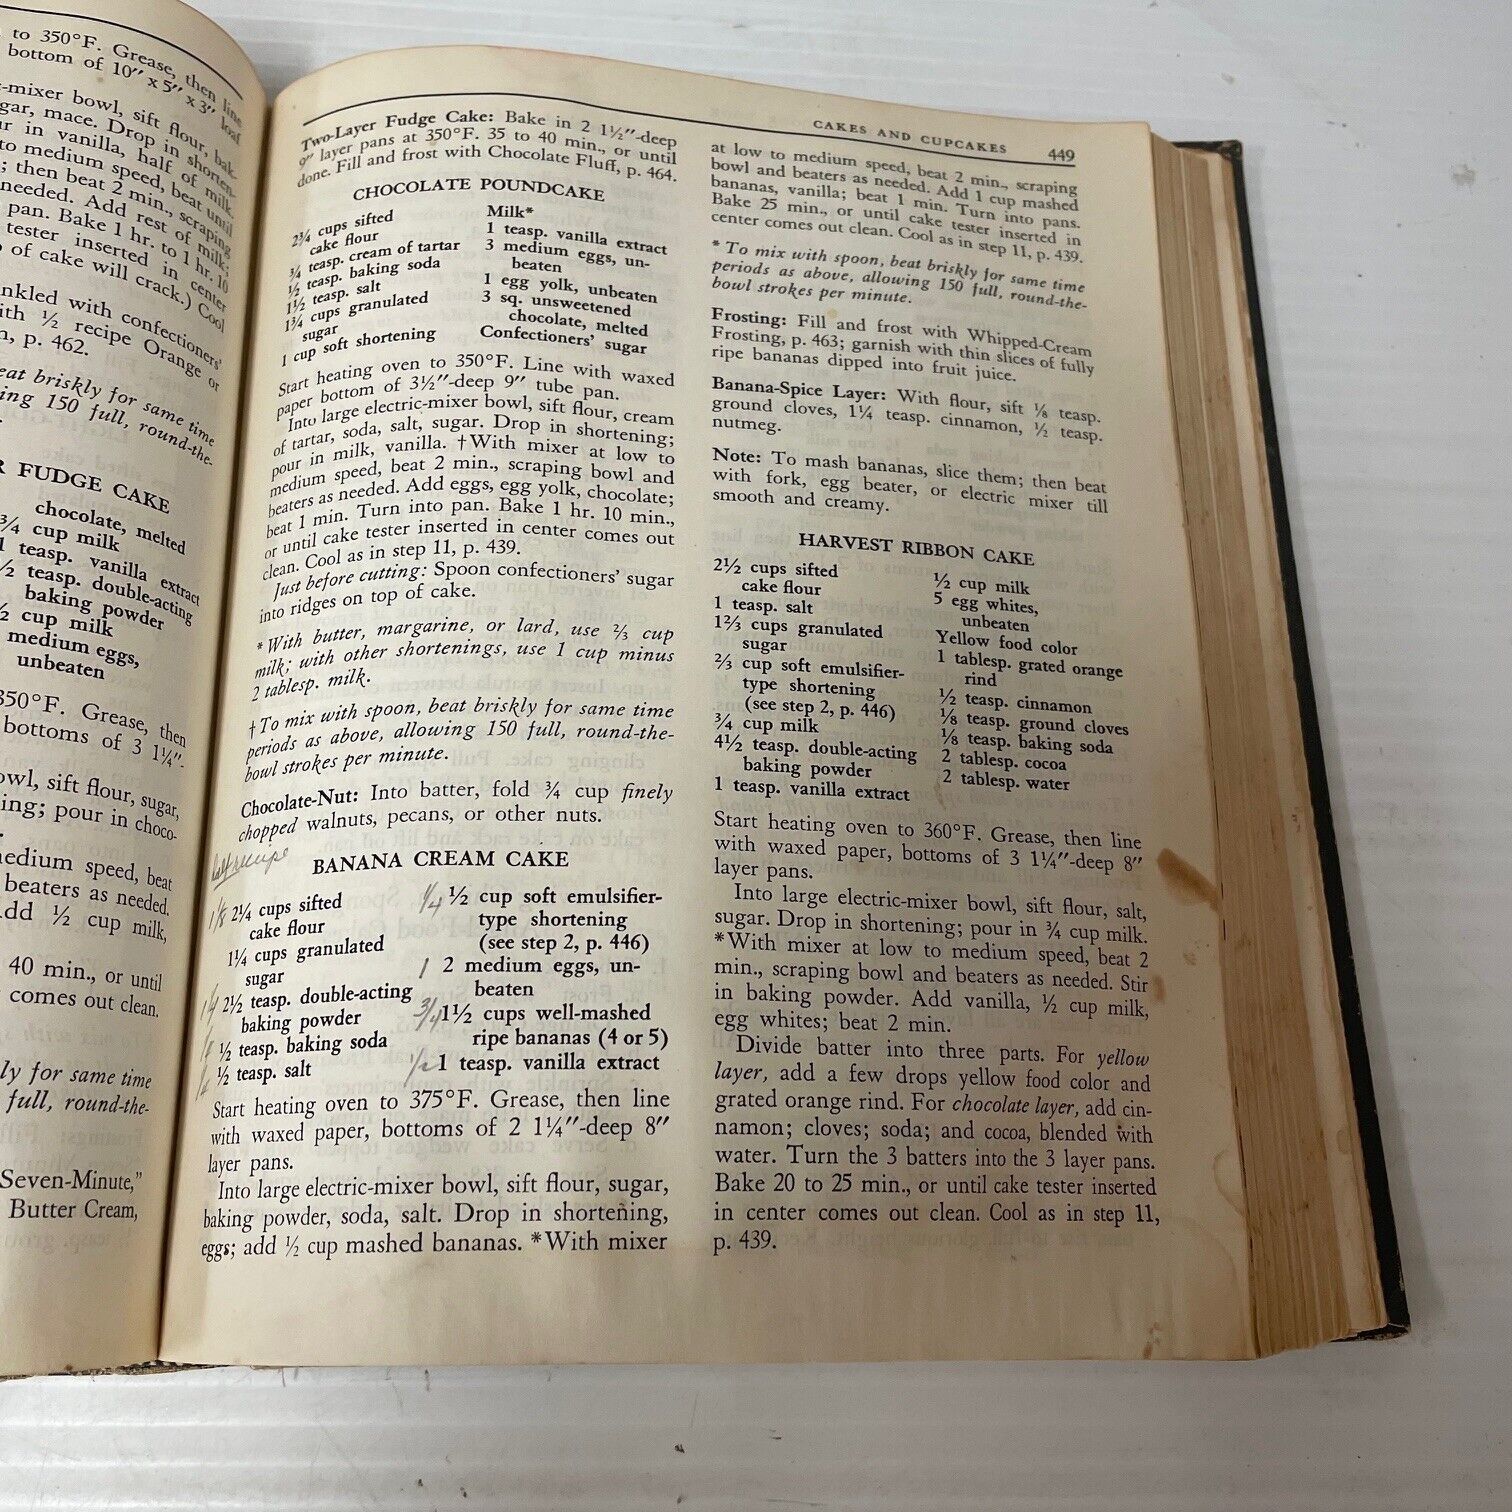 to 350°F. Grease, then line
bottom of 10" x 5" x 3" loaf
-mixer bowl, sift flour, bak-
gar, mace. Drop in shorten-
ur in vanilla, half of milk.
to medium speed, beat until
; then beat 2 min., scraping
needed. Add rest of milk;
pan. Bake 1 hr. to 1 hr. 10
tester inserted in center
of cake will crack.) Cool
nkled with confectioners'
ith ½ recipe Orange or
n, p. 462.
eat briskly for same time
ing 150 full, round-the-
R FUDGE CAKE
chocolate, melted
¾ cup milk
1 teasp. vanilla extract
½ teasp. double-acting
baking powder
½ cup milk
medium eggs,
unbeaten
350°F. Grease, then
bottoms of 3 1¼"-
owl, sift flour, sugar,
ing; pour in choco-
medium speed, beat
beaters as needed.
Add ½ cup milk,
40 min., or until
comes out clean.
ly for same time
full, round-the-
Seven-Minute,"
Butter Cream,
CAKES AND CUPCAKES 449
Two-Layer Fudge Cake: Bake in 2 1½"-deep
9" layer pans at 350°F. 35 to 40 min., or until
done. Fill and frost with Chocolate Fluff, p. 464.
CHOCOLATE POUNDCAKE
2¾ cups sifted
cake flour
¾ teasp. cream of tartar
½ teasp. baking soda
1½ teasp. salt
1¾ cups granulated
sugar
1 cup soft shortening
Milk*
1 teasp. vanilla extract
3 medium eggs, un-
beaten
1 egg yolk, unbeaten
3 sq. unsweetened
chocolate, melted
Confectioners' sugar
Start heating oven to 350°F. Line with waxed
paper bottom of 3½"-deep 9" tube pan.
Into large electric-mixer bowl, sift flour, cream
of tartar, soda, salt, sugar. Drop in shortening;
pour in milk, vanilla. †With mixer at low to
medium speed, beat 2 min., scraping bowl and
beaters as needed. Add eggs, egg yolk, chocolate;
beat 1 min. Turn into pan. Bake 1 hr. 10 min.,
or until cake tester inserted in center comes out
clean. Cool as in step 11, p. 439.
Just before cutting: Spoon confectioners' sugar
into ridges on top of cake.
*With butter, margarine, or lard, use ⅔ cup
milk; with other shortenings, use 1 cup minus
2 tablesp. milk.
†To mix with spoon, beat briskly for same time
periods as above, allowing 150 full, round-the-
bowl strokes per minute.
Chocolate-Nut: Into batter, fold ¾ cup finely
chopped walnuts, pecans, or other nuts.
half recipe
BANANA CREAM CAKE
1⅛ 2¼ cups sifted
cake flour
1¼ cups granulated
sugar
1¼ 2½ teasp. double-acting
baking powder
¼ ½ teasp. baking soda
¼ ½ teasp. salt
¼ ½ cup soft emulsifier-
type shortening
(see step 2, p. 446)
1 2 medium eggs, un-
beaten
¾ 1½ cups well-mashed
ripe bananas (4 or 5)
½ 1 teasp. vanilla extract
Start heating oven to 375°F. Grease, then line
with waxed paper, bottoms of 2 1¼"-deep 8"
layer pans.
Into large electric-mixer bowl, sift flour, sugar,
baking powder, soda, salt. Drop in shortening,
eggs; add ½ cup mashed bananas. *With mixer
at low to medium speed, beat 2 min., scraping
bowl and beaters as needed. Add 1 cup mashed
bananas, vanilla; beat 1 min. Turn into pans.
Bake 25 min., or until cake tester inserted in
center comes out clean. Cool as in step 11, p. 439.
*To mix with spoon, beat briskly for same time
periods as above, allowing 150 full, round-the-
bowl strokes per minute.
Frosting: Fill and frost with Whipped-Cream
Frosting, p. 463; garnish with thin slices of fully
ripe bananas dipped into fruit juice.
Banana-Spice Layer: With flour, sift ⅛ teasp.
ground cloves, 1¼ teasp. cinnamon, ½ teasp.
nutmeg.
Note: To mash bananas, slice them; then beat
with fork, egg beater, or electric mixer till
smooth and creamy.
HARVEST RIBBON CAKE
2½ cups sifted
cake flour
1 teasp. salt
1⅔ cups granulated
sugar
⅔ cup soft emulsifier-
type shortening
(see step 2, p. 446)
¾ cup milk
4½ teasp. double-acting
baking powder
1 teasp. vanilla extract
½ cup milk
5 egg whites,
unbeaten
Yellow food color
1 tablesp. grated orange
rind
½ teasp. cinnamon
⅛ teasp. ground cloves
⅛ teasp. baking soda
2 tablesp. cocoa
2 tablesp. water
Start heating oven to 360°F. Grease, then line
with waxed paper, bottoms of 3 1¼"-deep 8"
layer pans.
Into large electric-mixer bowl, sift flour, salt,
sugar. Drop in shortening; pour in ¾ cup milk.
*With mixer at low to medium speed, beat 2
min., scraping bowl and beaters as needed. Stir
in baking powder. Add vanilla, ½ cup milk,
egg whites; beat 2 min.
Divide batter into three parts. For yellow
layer, add a few drops yellow food color and
grated orange rind. For chocolate layer, add cin-
namon; cloves; soda; and cocoa, blended with
water. Turn the 3 batters into the 3 layer pans.
Bake 20 to 25 min., or until cake tester inserted
in center comes out clean. Cool as in step 11,
p. 439.